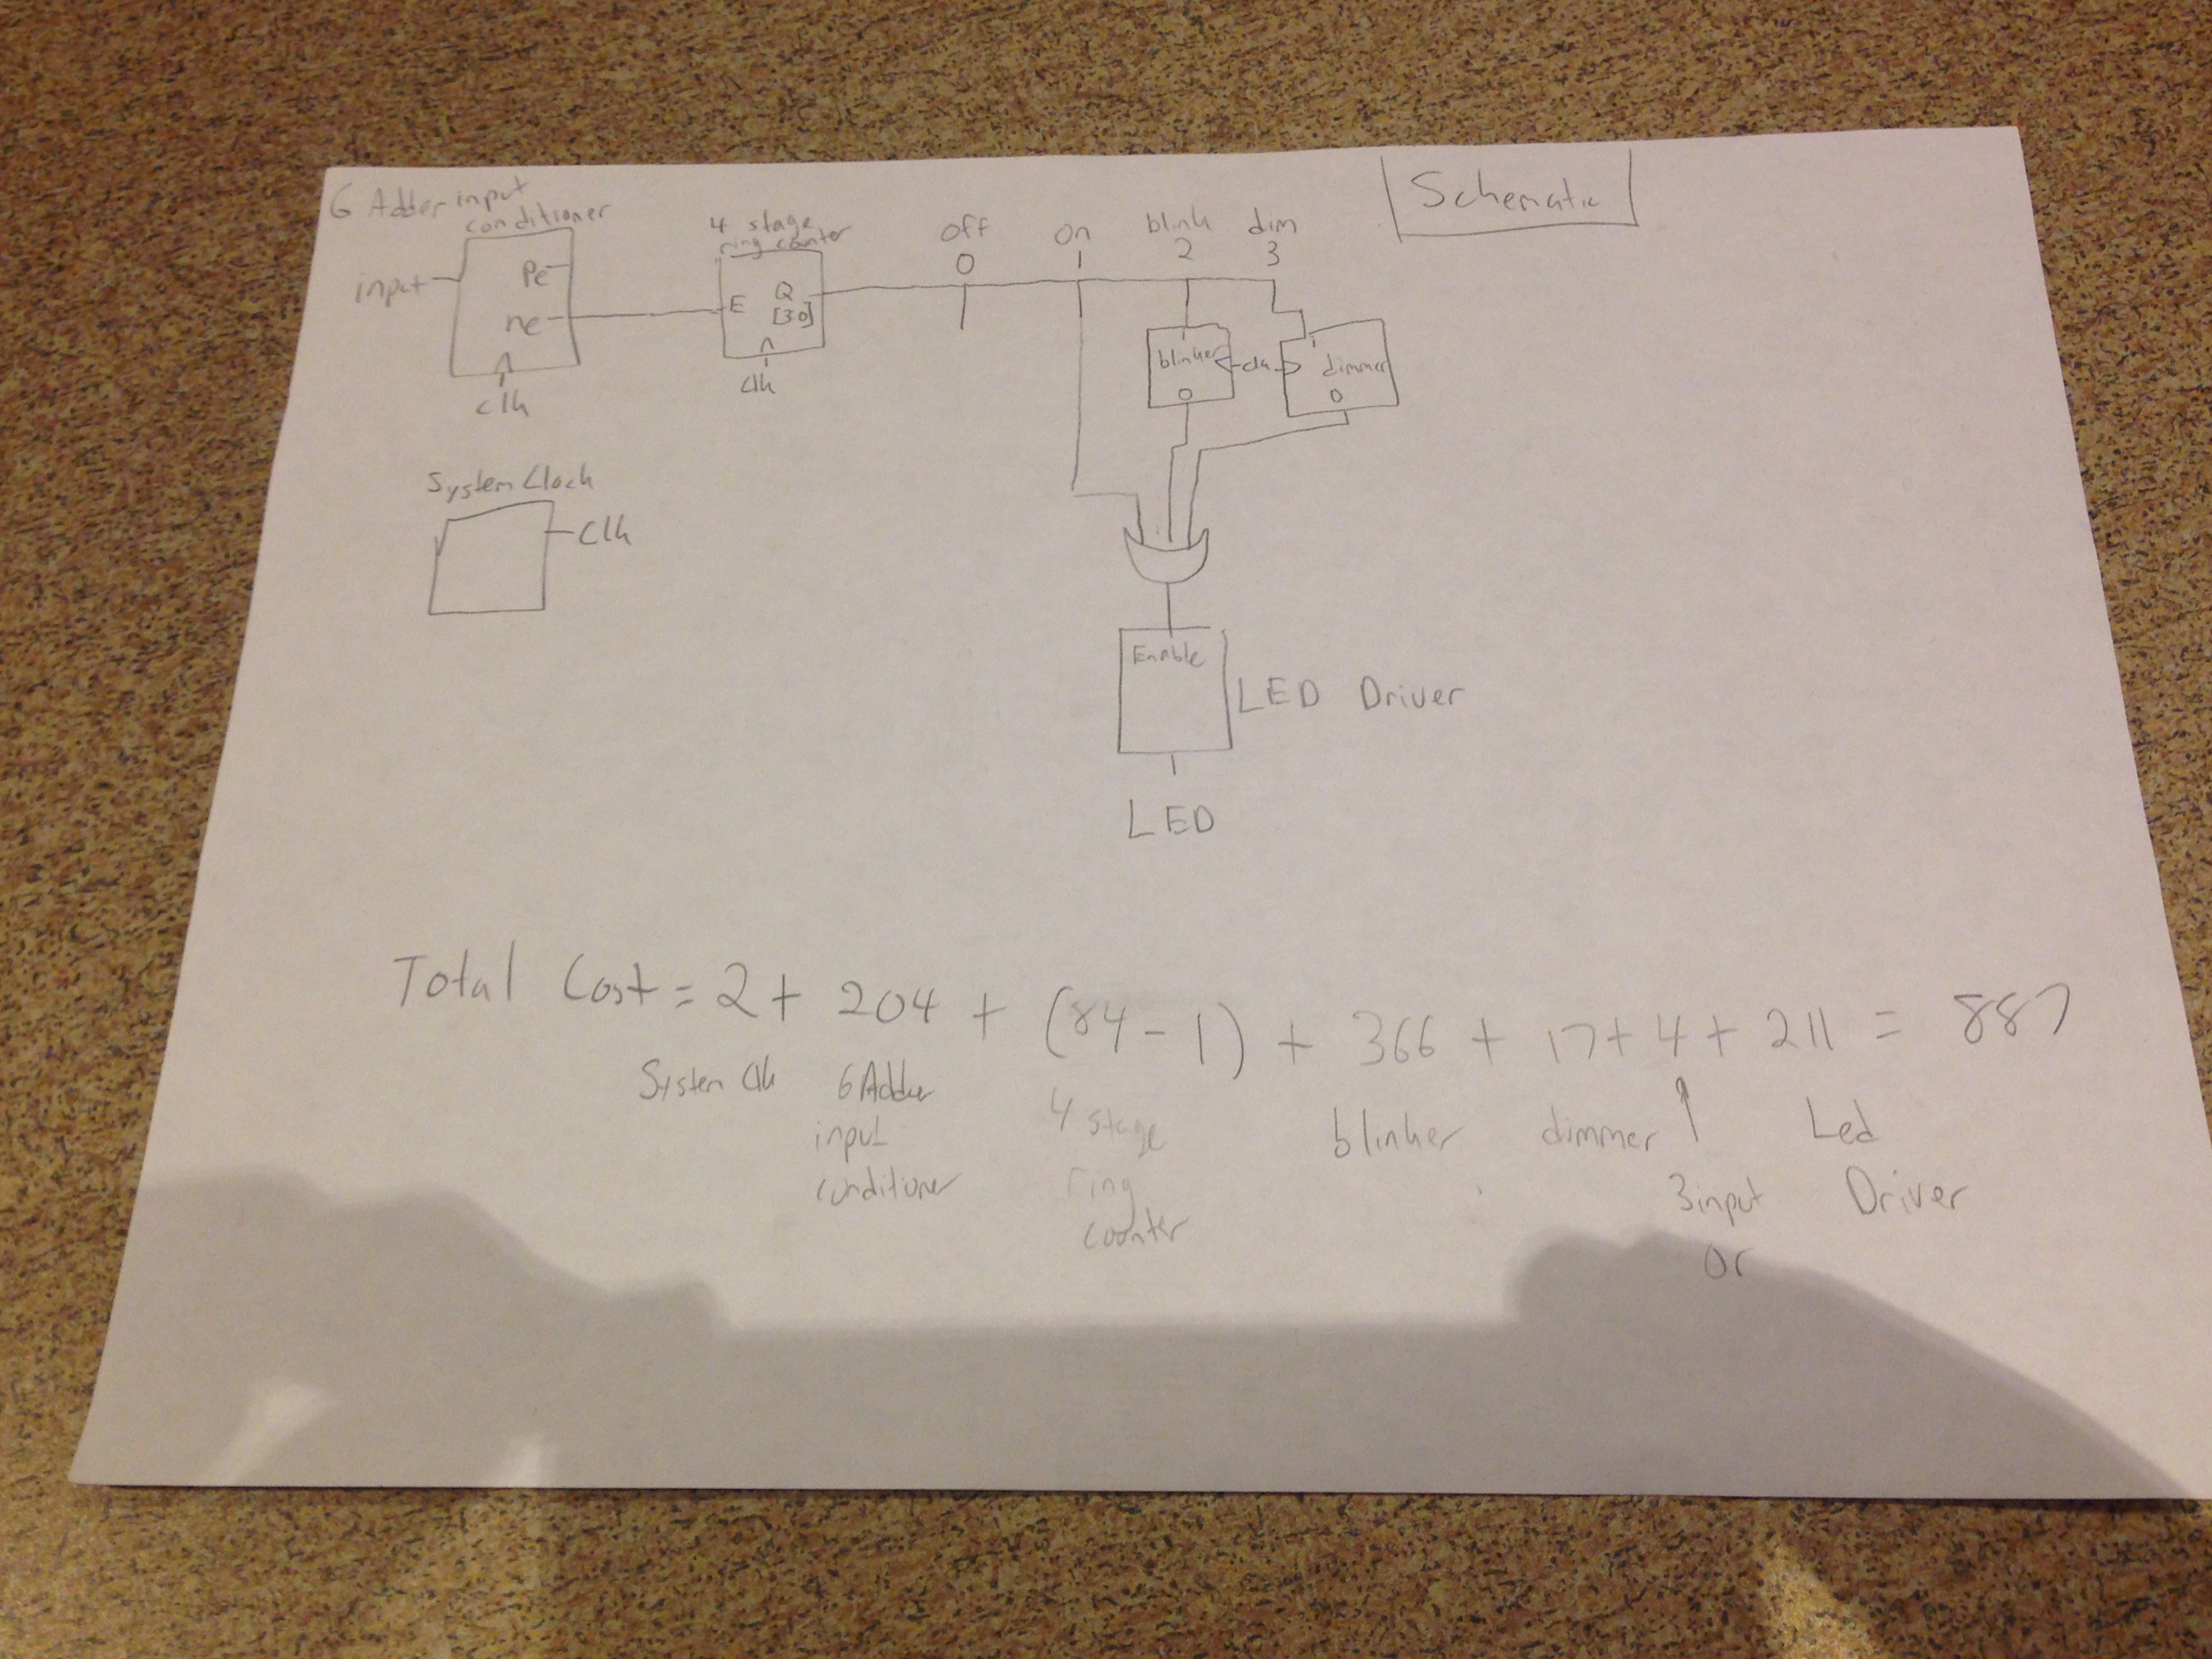 Schematic
6 Adder input
conditioner
4 stage
ring counter
off
on
blink
dim
0
1
2
3
input
Pe
ne
clk
E
Q
[30]
clk
blinker
O
clk
1
dimmer
O
System Clock
Clk
Enable
LED Driver
LED
Total Cost = 2 + 204 + (84 - 1) + 366 + 17 + 4 + 211 = 887
System Clk
6 Adder
input
conditioner
4 stage
ring
counter
blinker
dimmer
3 input
or
Led
Driver